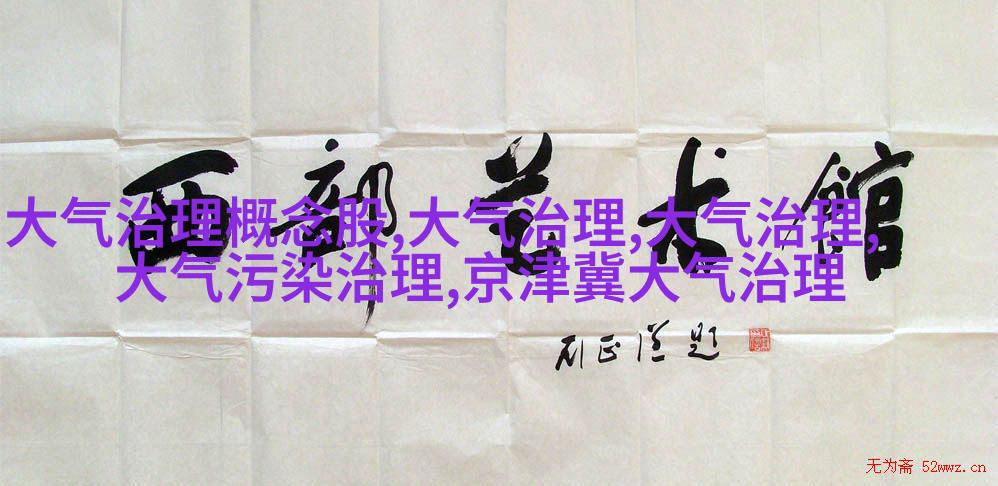 西部艺术馆
大气治理概念股,大气治理,大气治理,
大气污染治理,京津冀大气治理
题
无为斋 52wwz.cn